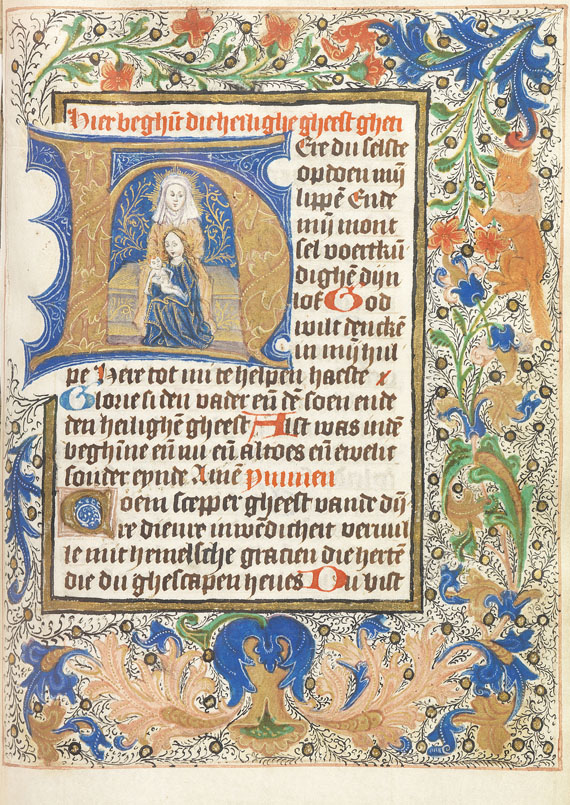 Hier beghīt die heilighe gheest ghetī
Ere du selste
opdoen mij
lippē Ende
mij mont
sel voertkū
dighē dijn
lof God
wilt denckē
in mij hul
pe Here tot mi te helpen haeste x
Glorie si den vader eñ dē soen ende
den heilighē gheest Alst was indē
beghine eñ nu eñ altoes eñ ewelit
sonder eynde Amē
Coem scepper gheest vande dij
re dienre inwēdicheit vervul
le mit hemelsche gracien die hertē
die du ghescapen heves Du bist